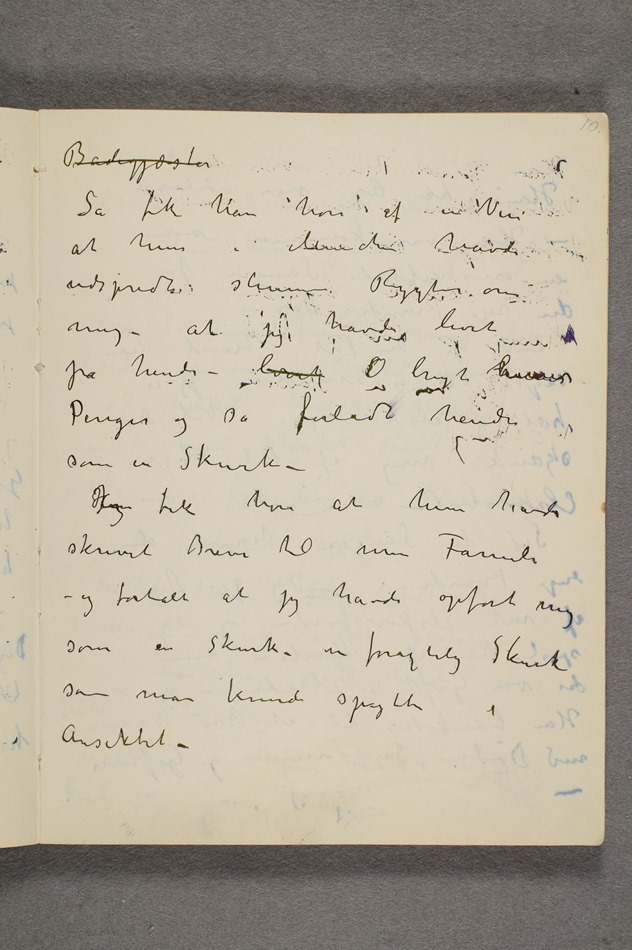 10.
Badegjæster
Sa fik han hore af en Ven
at hun i havde
udspredt slemme Rygter om
mig – at jeg havde levet
pa hende – levet O brugt hennes
Penger og sa forladt hende
som en Skurk –
Jeg fik hore at hun havde
skrevet Breve til min Famili
– og fortalt at jeg havde opført mig
som en Skurk – en foragtelig Skurk
som man kunde spytte i
Ansiktet –